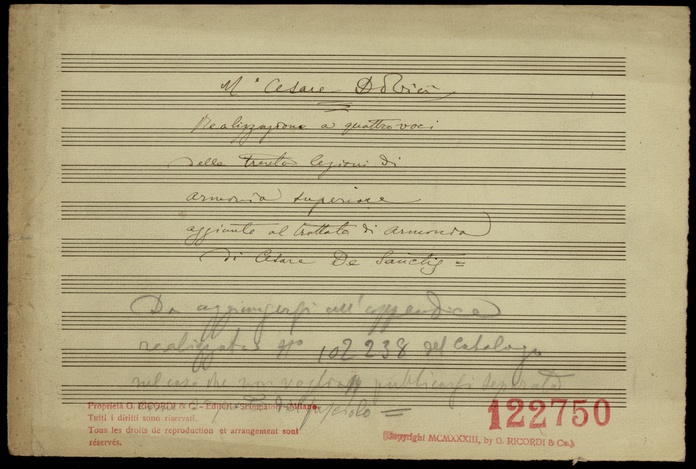 M° Cesare Dobici
Realizzazione a quattro voci
delle trenta lezioni di
armonia superiore
aggiunte al trattato di armonia
di Cesare De Sanctis =
Da aggiungersi all'appendice
realizzata n° 102238 del Catalogo
nel caso che non pubblicarsi
fascicolo =
Proprietà G. RICORDI & C. - Editori-Stampatori - Milano.
Tutti i diritti sono riservati.
Tous les droits de reproduction et arrangement sont
réservés.
122750
(Copyright MCMXXXIII, by G. RICORDI & Co.)